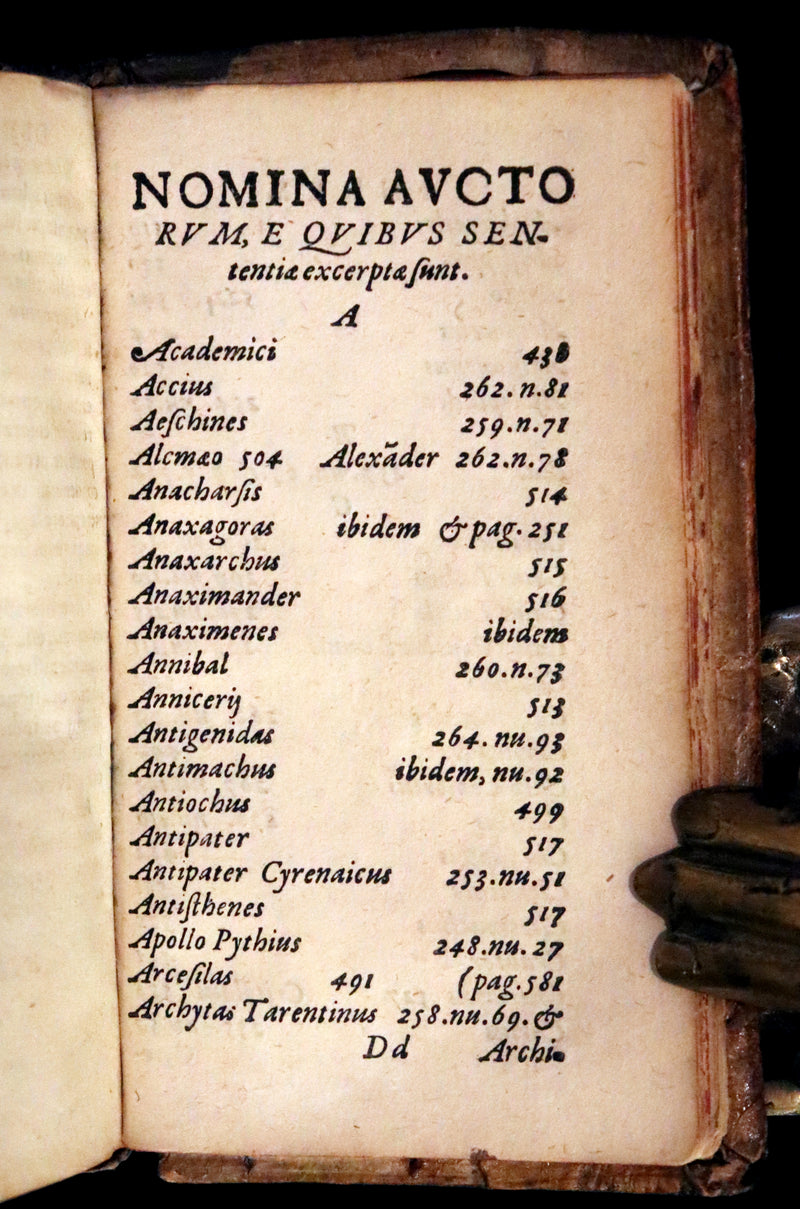 NOMINA AVCTO
RVM, E QVIBVS SEN-
tentiæ excerptæ ſunt.
A
Academici 438
Accius 262. n. 81
Aeſchines 259. n. 71
Alcmæo 504 Alexãder 262. n. 78
Anacharſis 514
Anaxagoras ibidem & pag. 251
Anaxarchus 515
Anaximander 516
Anaximenes ibidem
Annibal 260. n. 73
Annicerij 513
Antigenidas 264. nu. 93
Antimachus ibidem, nu. 92
Antiochus 499
Antipater 517
Antipater Cyrenaicus 253. nu. 51
Antiſthenes 517
Apollo Pythius 248. nu. 27
Arceſilas 491 (pag. 581
Archytas Tarentinus 258. nu. 69. &
Dd Archi-